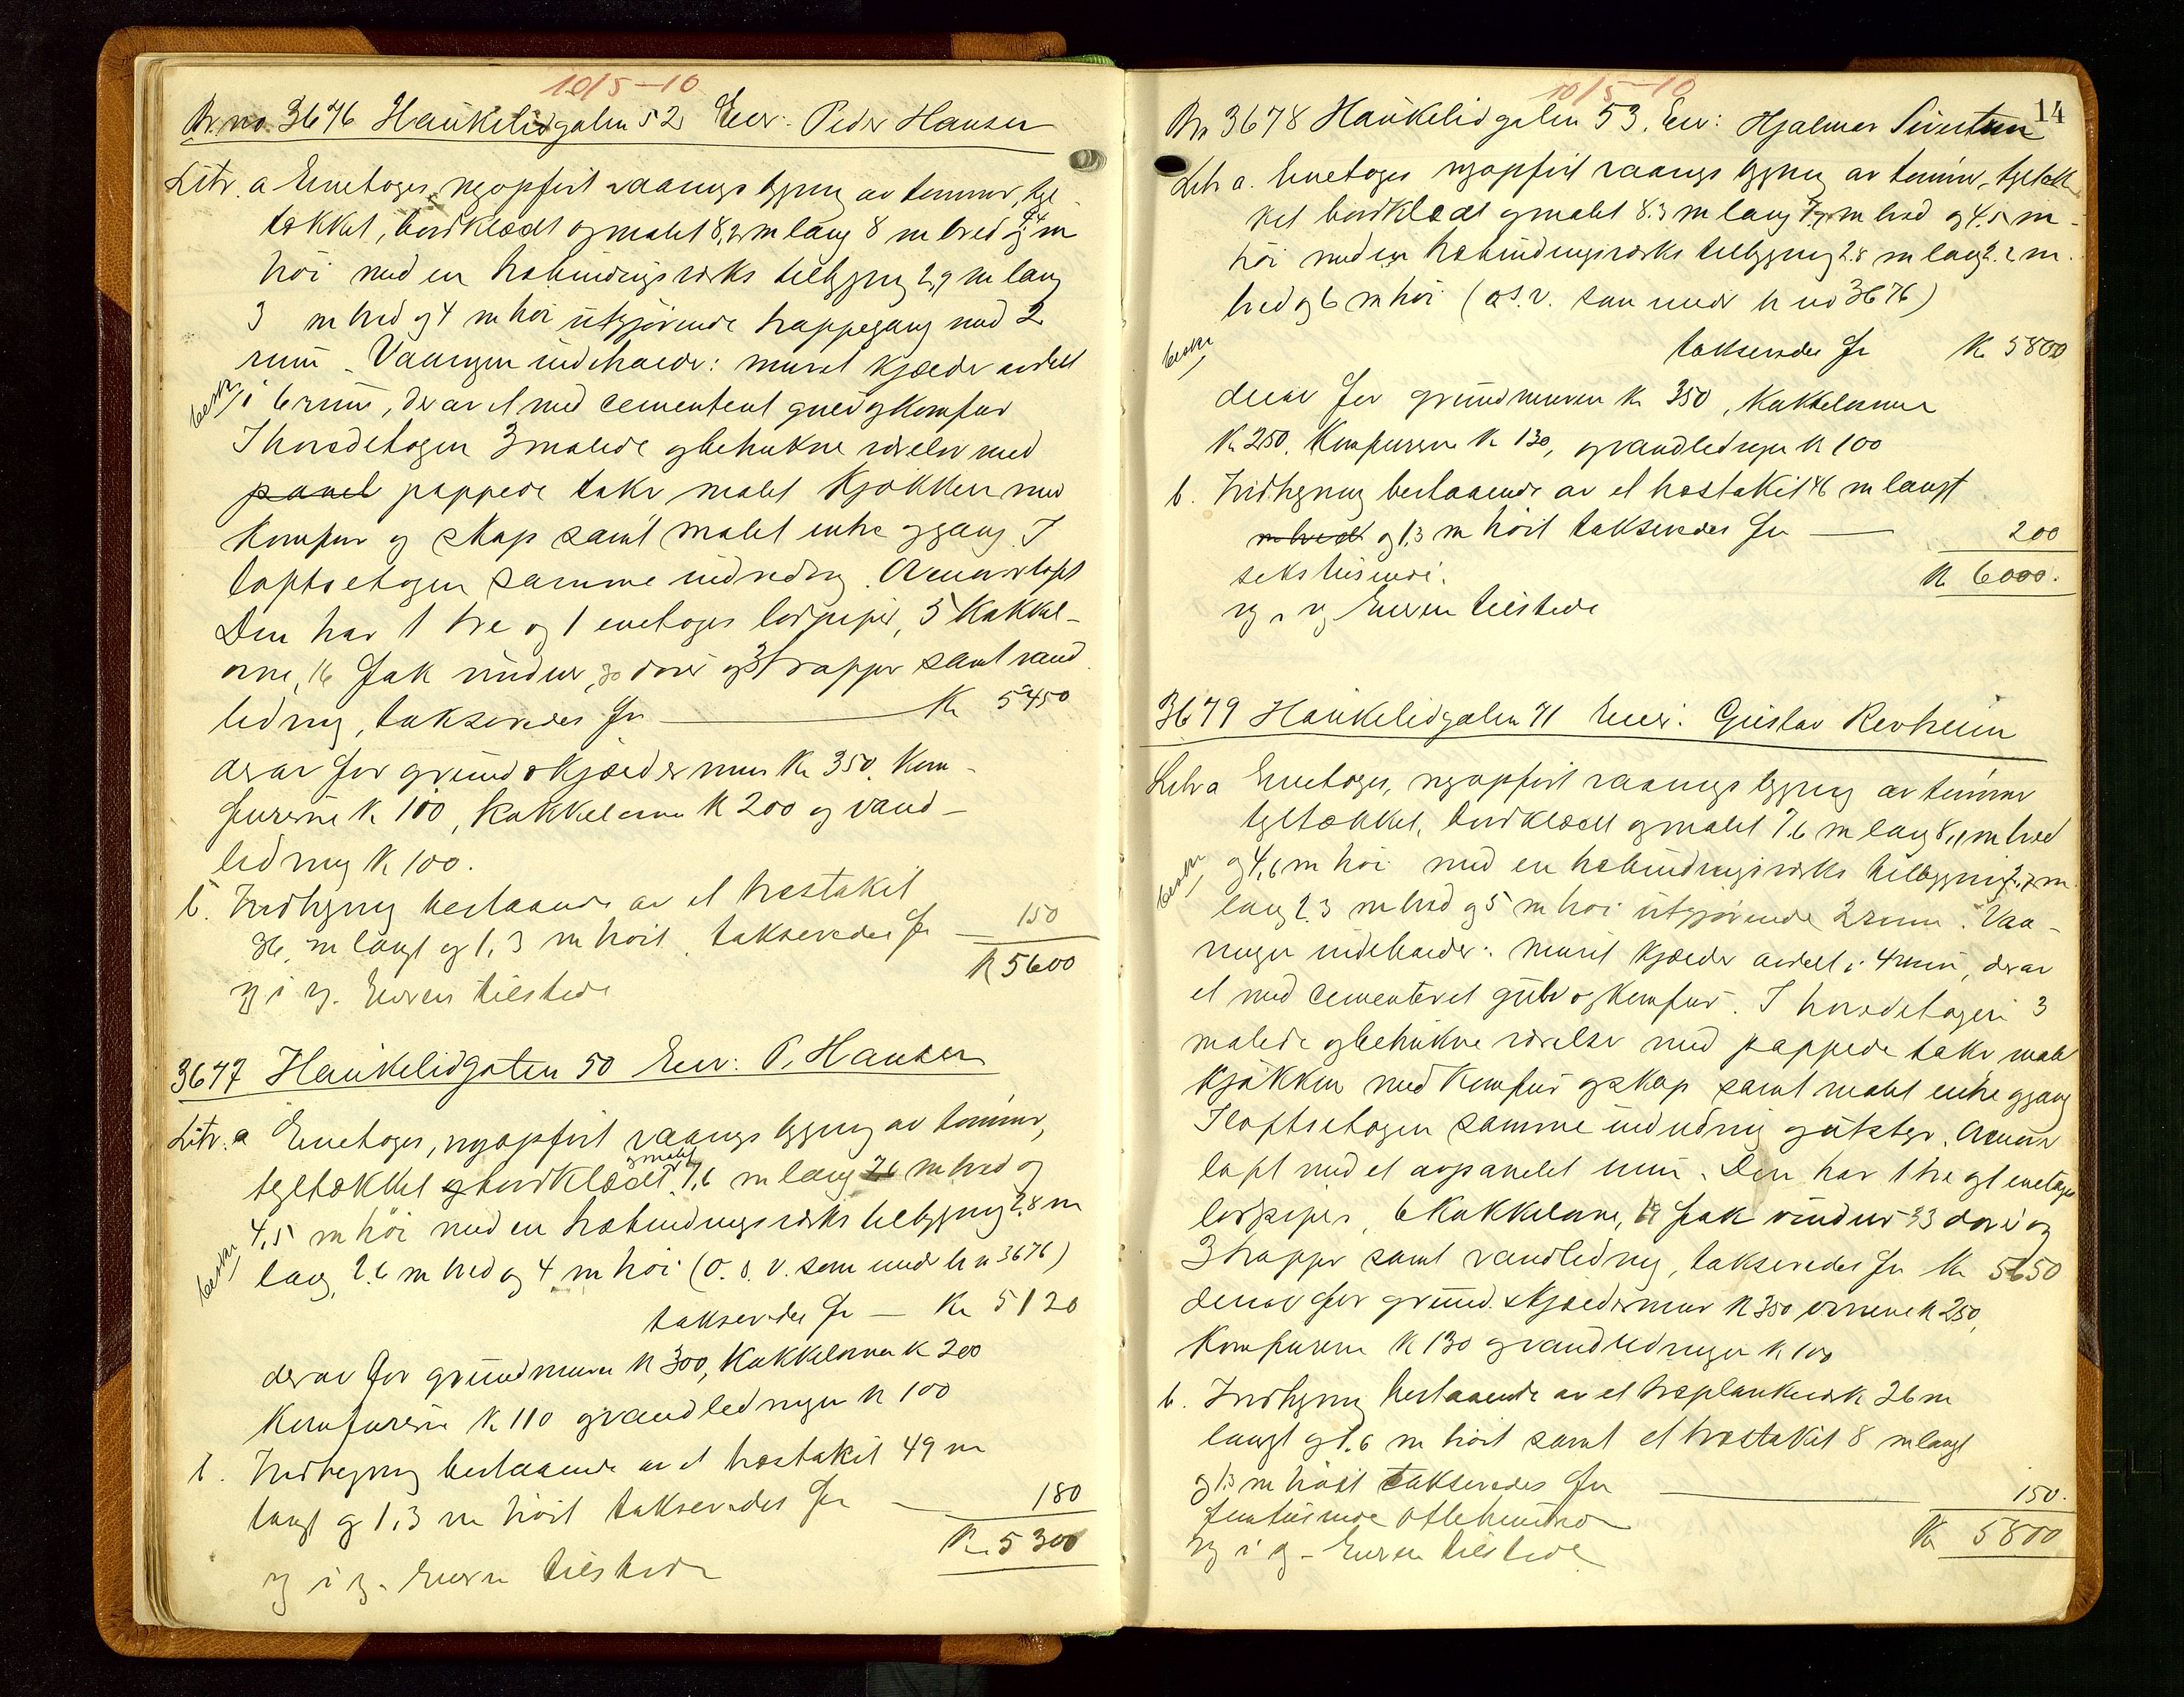 10/5-10
Br. no. 3676 Haukelidgaten 52 Eier: Peder Hansen
Litr. a Eenetages, nyopført vaanings bygning av tømmer, tegl
tækket, bordklædt og malet 8,2 m lang 8 m bred og 4,4 m
høi med en træbindingsværks tilbygning 2,9 m lang
3 m bred og 4 m høi utgjørende trappegang med 2
rum. Vaaningen indeholder: muret kjælder avdelt
besk. i 6 rum, derav et med cementert gulv og komfur
I hovedetagen 3 malede og betrukne værelser med
panel pappede take malet kjøkken med
komfur og skap samt malet entre og gang. I
loftsetagen samme indredning. Aapent loft
Den har 1 tre og 1 enetages lodpiper, 5 kakkel-
ovne, 16 fak vinduer, 20 dører og 3 trapper samt vand
ledning, takseredes for — Kr 5450
derav for grund & kjældermur Kr 350. Kom-
furerne Kr 100, kakkelovne Kr 200 og vand-
ledning Kr 100.
b. Indhegning bestaaende av et træstakit
36 m langt og 1,3 m høit takseredes for — 150
Kr 5600
Eieren tilstede
3677 Haukelidgaten 50 Eier: P. Hansen
Litr. a Eenetages, nyopført vaanings bygning av tømmer,
og malet
tegltækket og bordklædt 7,6 m lang 7,6 m bred og
4,5 m høi med en træbindingsværks tilbygning 2,8 m
besk. lang, 2.6 m bred og 4 m høi (o. s. v. som under br n 3676)
takseredes for — Kr 5120
derav for grundmuren Kr 300, kakkelovne Kr 200
komfurerne Kr 110 og vandledningen Kr 100
b. Indhegning bestaaende av et træstakit 49 m
langt og 1,3 m høit takseredes for — 180
Kr. 5300
Eieren tilstede
10/5-10
14
Br 3678 Haukelidgaten 53. Eier: Hjalmar Sivertsen
Litr a. Enetages nyopført vaanings bygning av tømmer, tegltæk
ket bordklædt og malet 8.3 m lang 7,9 m bred og 4.5 m
høi med en træbindingsværks tilbygning 2.8 m lang 2.2 m
bred og 6 m høi (o.s.v. som under br no 3676)
besk. takseredes for Kr 5800
derav for grundmuren Kr 350, kakkelovnene
Kr 250. Komfurerne Kr 130, og vandledningen Kr 100
b. Indhegning bestaaende av et træstakit 46 m langt
m bredt og 1,3 m høit takseredes for — 200
sekstusinde. Kr 6000.
Eieren tilstede
3679 Haukelidgaten 71 Eier: Gustav Revheim
Litr a Enetages, nyopført vaanings bygning av tømmer
tegltækket, bordklædt og malet 7.6 m lang 8,1 m bred
besk. og 4,6 m høi med en træbindingsværks tilbygning 2,7 m
lang 2.3 m bred og 5 m høi utgjørende 2 rum. Vaa-
ningen indeholder: muret kjælder avdelt i 4 rum, derav
et med cementeret gulv og komfur. I hovedetagen 3
malede og betrukne værelser med pappede take malet
kjøkken med komfur og skap samt malet entre og gang
I loftsetagen samme indredning og utstyr. Aapent
loft med et avpanelet rum. Den har 1 tre og 1 enetages
lodpiper, 6 kakkelovne, 19 fak vinduer 23 dører og
3 trapper samt vandledning, takseredes for Kr 5650
derav for grund & kjældermur Kr 350 ovnene Kr 250,
komfurerne Kr 130 og vandledningen Kr 100
b. Indhegning bestaaende av et træplankeværk 26 m
langt og 1.6 m høit samt et træstakit 8 m langt
og 1.3 m høit takseredes for — 150.
femtusinde ottehundrede Kr 5800
Eieren tilstede